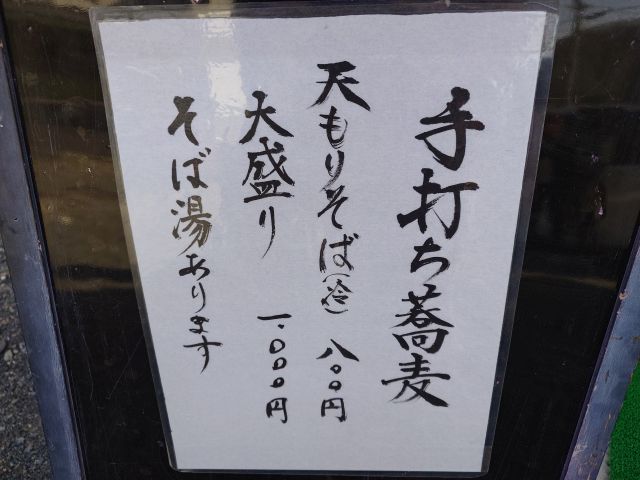 手打ち蕎麦
天もりそば(冷) 八〇〇円
大盛り 一.〇〇〇円
そば湯あります